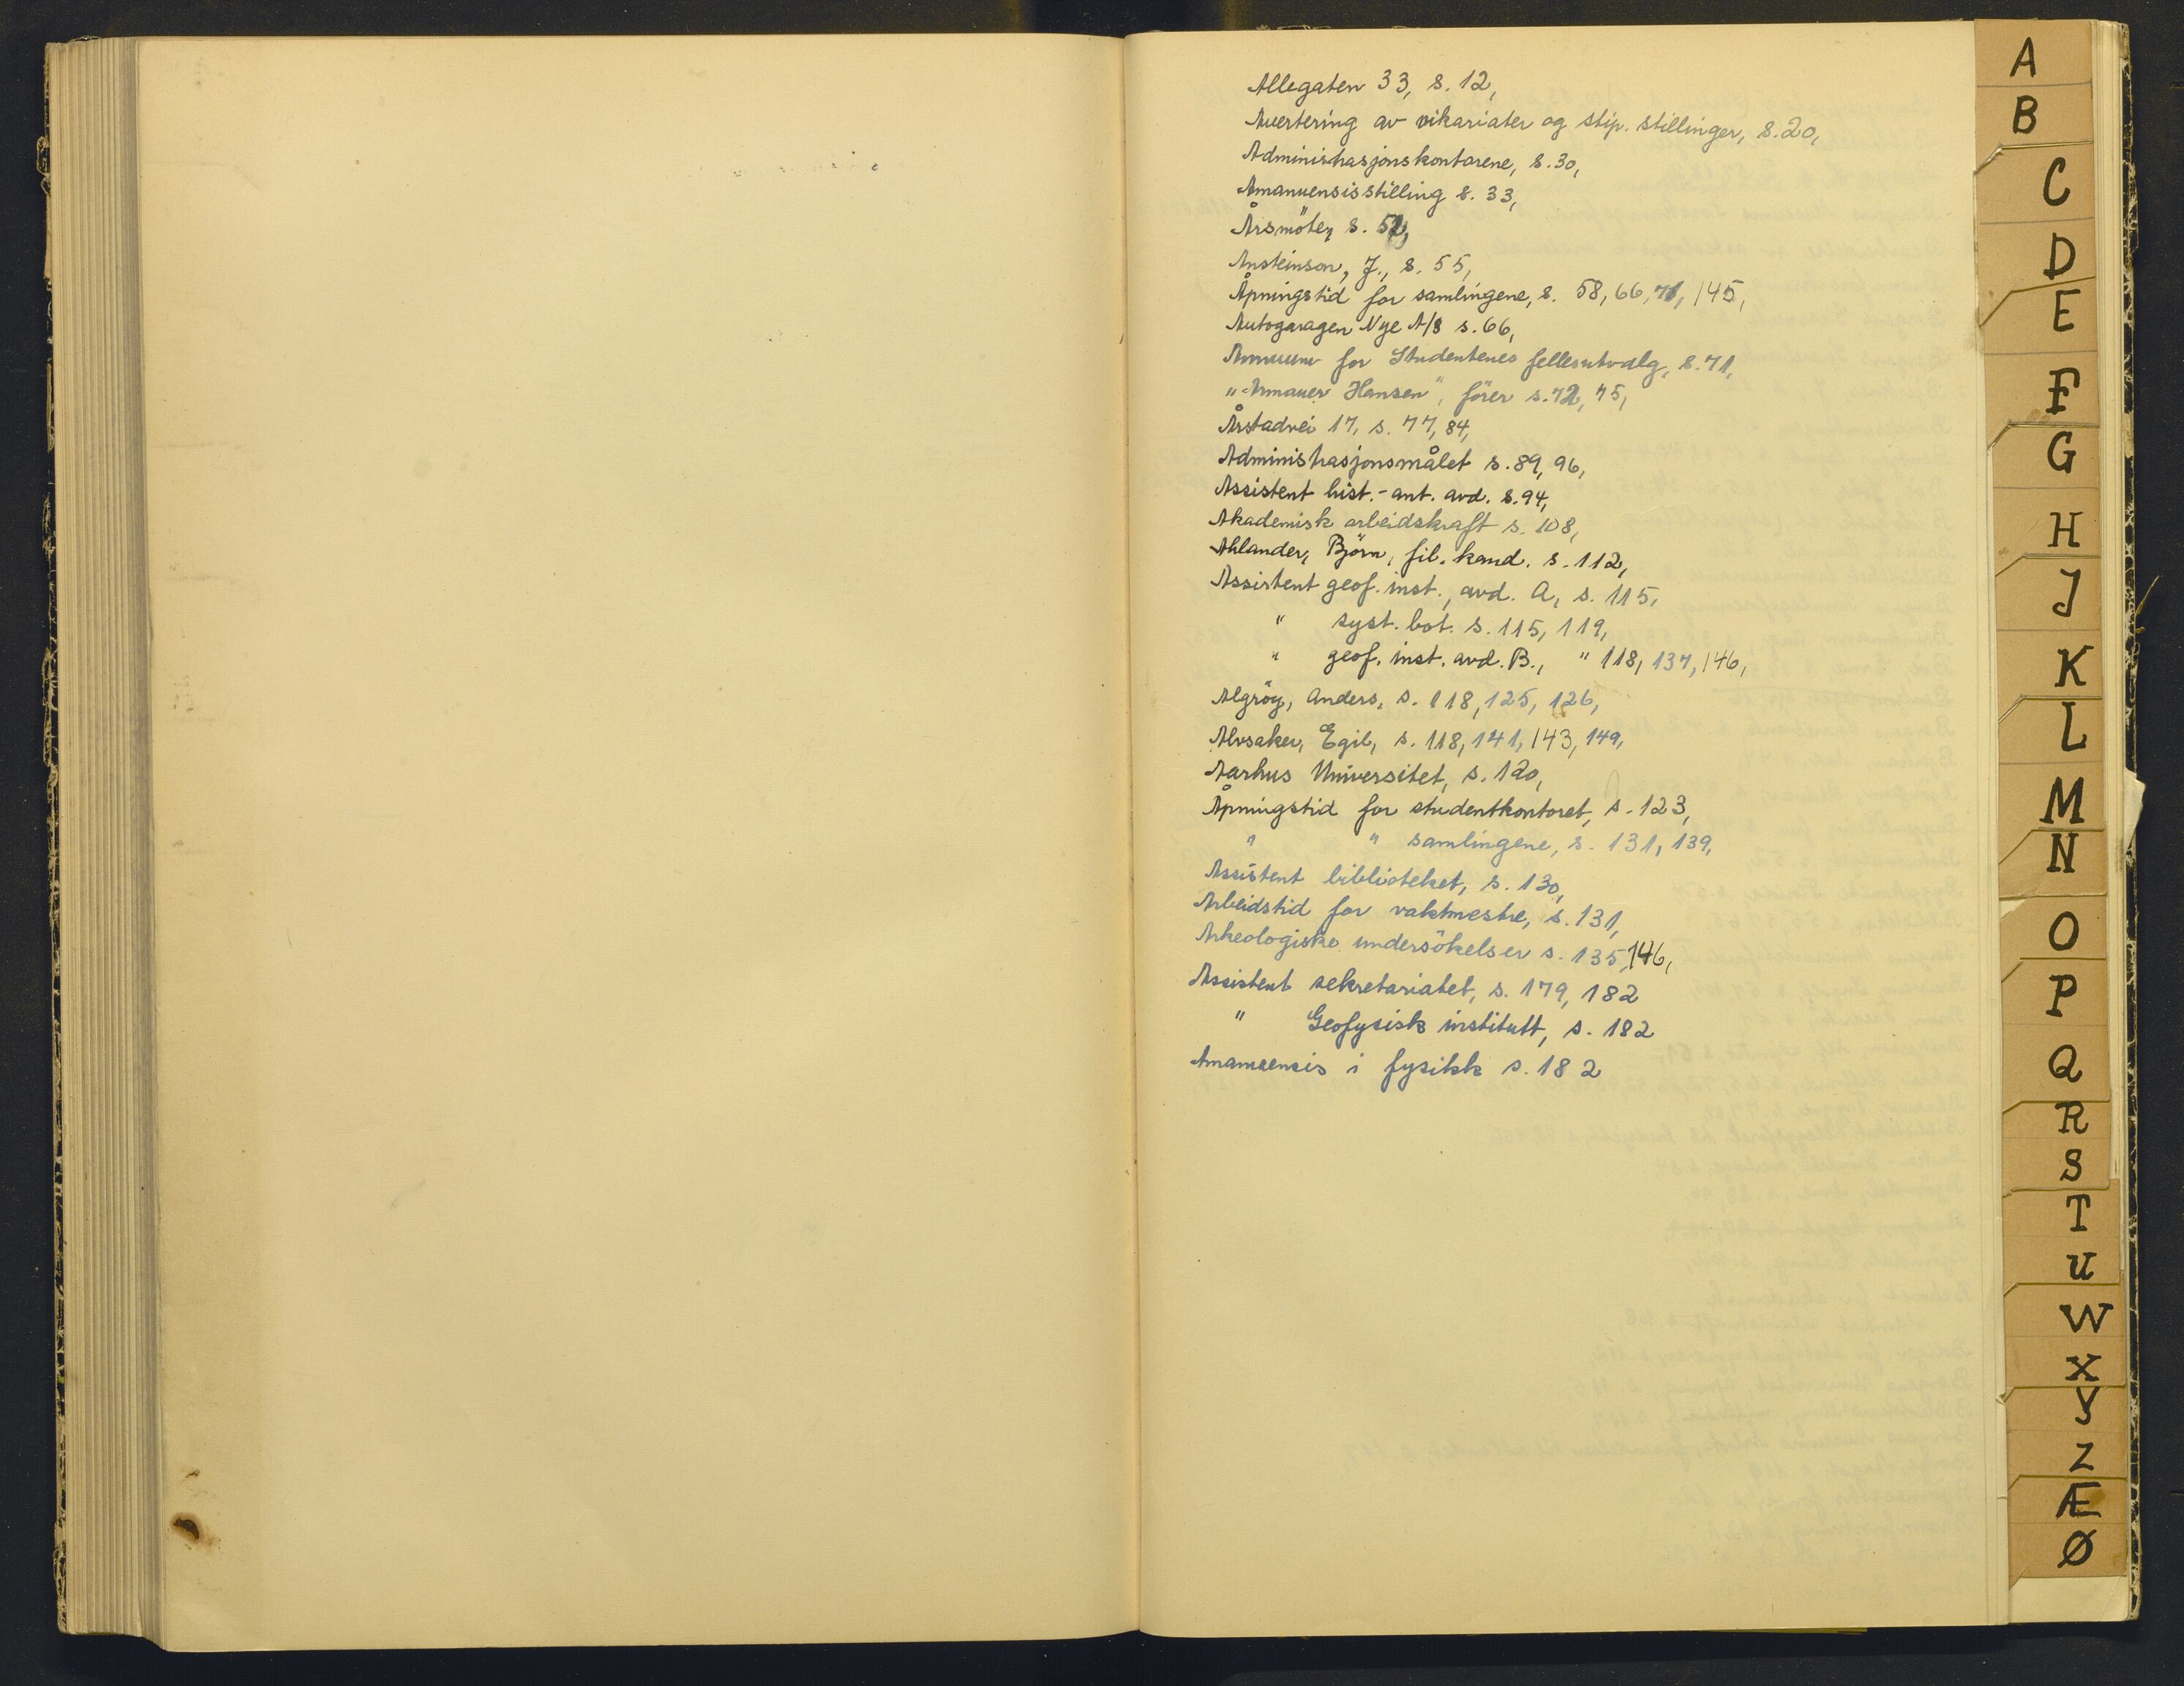 Allegaten 33, s. 12,
Avertering av vikariater og stip. stillinger, s. 20,
Administrasjonskontorene, s. 30,
Amanuensisstilling s. 33,
Årsmöte, s. 52,
Ansteinson, J., s. 55,
Åpningstid for samlingene, s. 58, 66, 71, 145,
Autogaragen Nye A/S s. 66,
Annuum for Studentenes fellesutvalg, s. 71,
"Armauer Hansen", förer s. 72, 75,
Årstadvei 17, s. 77, 84,
Administrasjonsmålet s. 89, 96,
Assistent hist.-ant. avd. s. 94,
Akademisk arbeidskraft s. 108,
Ahlander, Björn, fil. kand. s. 112,
Assistent geof. inst., avd. A, s. 115,
" syst. bot. s. 115, 119,
" geof. inst. avd. B., " 118, 137, 146,
Algröy, Anders, s. 118, 125, 126,
Alvsaker, Egil, s. 118, 141, 143, 149,
Aarhus Universitet, s. 120,
Åpningstid for studentkontoret, s. 123,
" " samlingene, s. 131, 139,
Assistent biblioteket, s. 130,
Arbeidstid for vaktmestre, s. 131,
Arkeologiske undersökelser s. 135, 146,
Assistent sekretariatet, s. 179, 182
" Geofysisk institutt, s. 182
Amanuensis i fysikk s. 182
A
B
C
D
E
F
G
H
J
K
L
M
N
O
P
Q
R
S
T
U
W
X
Y
Z
Æ
Ø